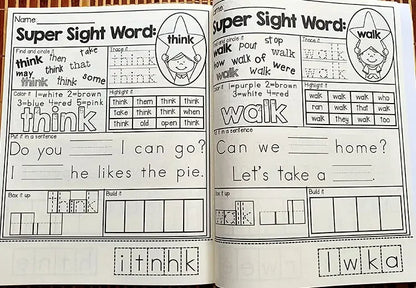 Name
Super Sight Word:
think
Find and circle it
think then take
may think that
think think some
Trace it
think
think
Color it 1=white 2=brown
3=blue 4=red 5=pink
think
Highlight it
think them think think
take think think when
think old open think
Put it in a sentence
Do you I can go?
I he likes the pie.
Box it up
think
Build it
i t n h k
Super Sight Word:
walk
Find and circle it
walk pout stop
how walk of walk
walk walk were
Trace it
walk
walk
Color it 1=purple 2=brown
3=white 4=red
walk
Highlight it
walk walk walk who
ran walk that walk
walk they walk too
Put it in a sentence
Can we home?
Let's take a .
Box it up
walk
Build it
l w k a